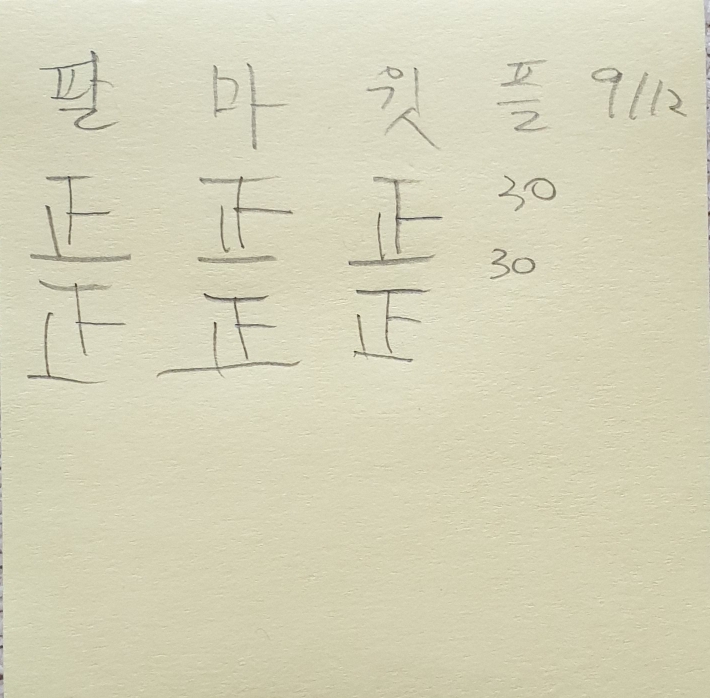 팔 마 윗 플 9/12
正 正 正 30
正 正 正 30